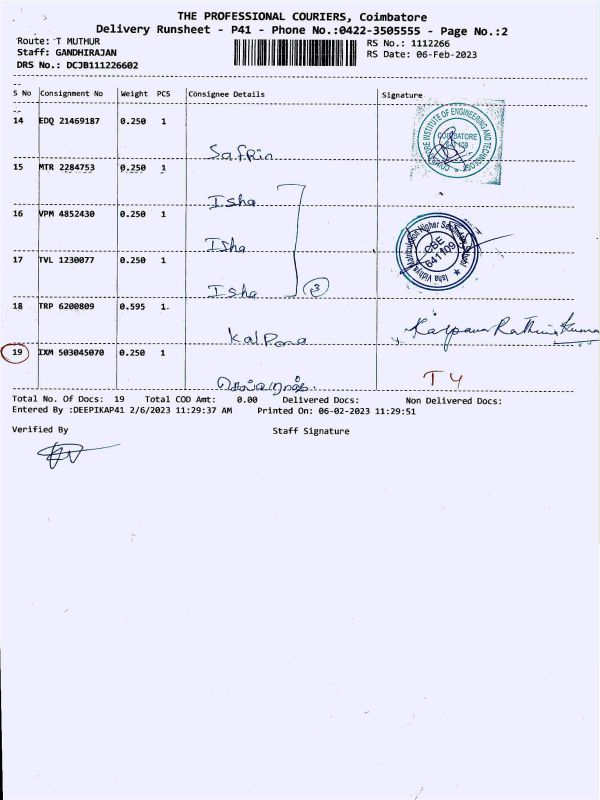 THE PROFESSIONAL COURIERS, Coimbatore
Delivery Runsheet - P41 - Phone No.:0422-3505555 - Page No.:2
Route: T MUTHUR
RS No.: 1112266
Staff: GANDHIRAJAN
RS Date: 06-Feb-2023
DRS No.: DCJB111226602
S No Consignment No Weight PCS Consignee Details Signature
14 EDQ 21469187 0.250 1
Safrin
COIMBATORE INSTITUTE OF ENGINEERING AND TECHNOLOGY
COIMBATORE
641 109
15 MTR 2284753 0.250 1
Isha
16 VPM 4852430 0.250 1
Isha
Isha Vidhya Matriculation Higher Secondary School
CBE
641109
17 TVL 1230077 0.250 1
Isha
3
18 TRP 6200809 0.595 1
Kalpana
Kalpana Rathina Kumar
19 IXM 503045070 0.250 1
T4
Total No. Of Docs: 19 Total COD Amt: 0.00 Delivered Docs: Non Delivered Docs:
Entered By :DEEPIKAP41 2/6/2023 11:29:37 AM Printed On: 06-02-2023 11:29:51
Verified By Staff Signature